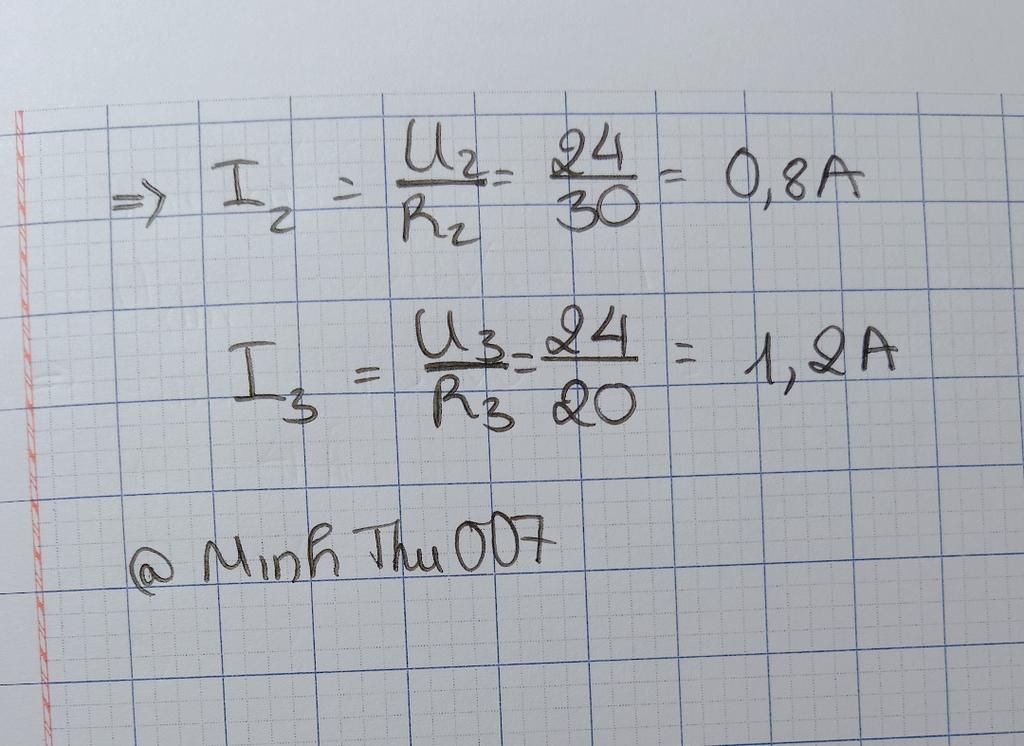 => I₂ = U₂/R₂ = 24/30 = 0,8A
I₃ = U₃/R₃ = 24/20 = 1,2A
@ Minh Thu 007